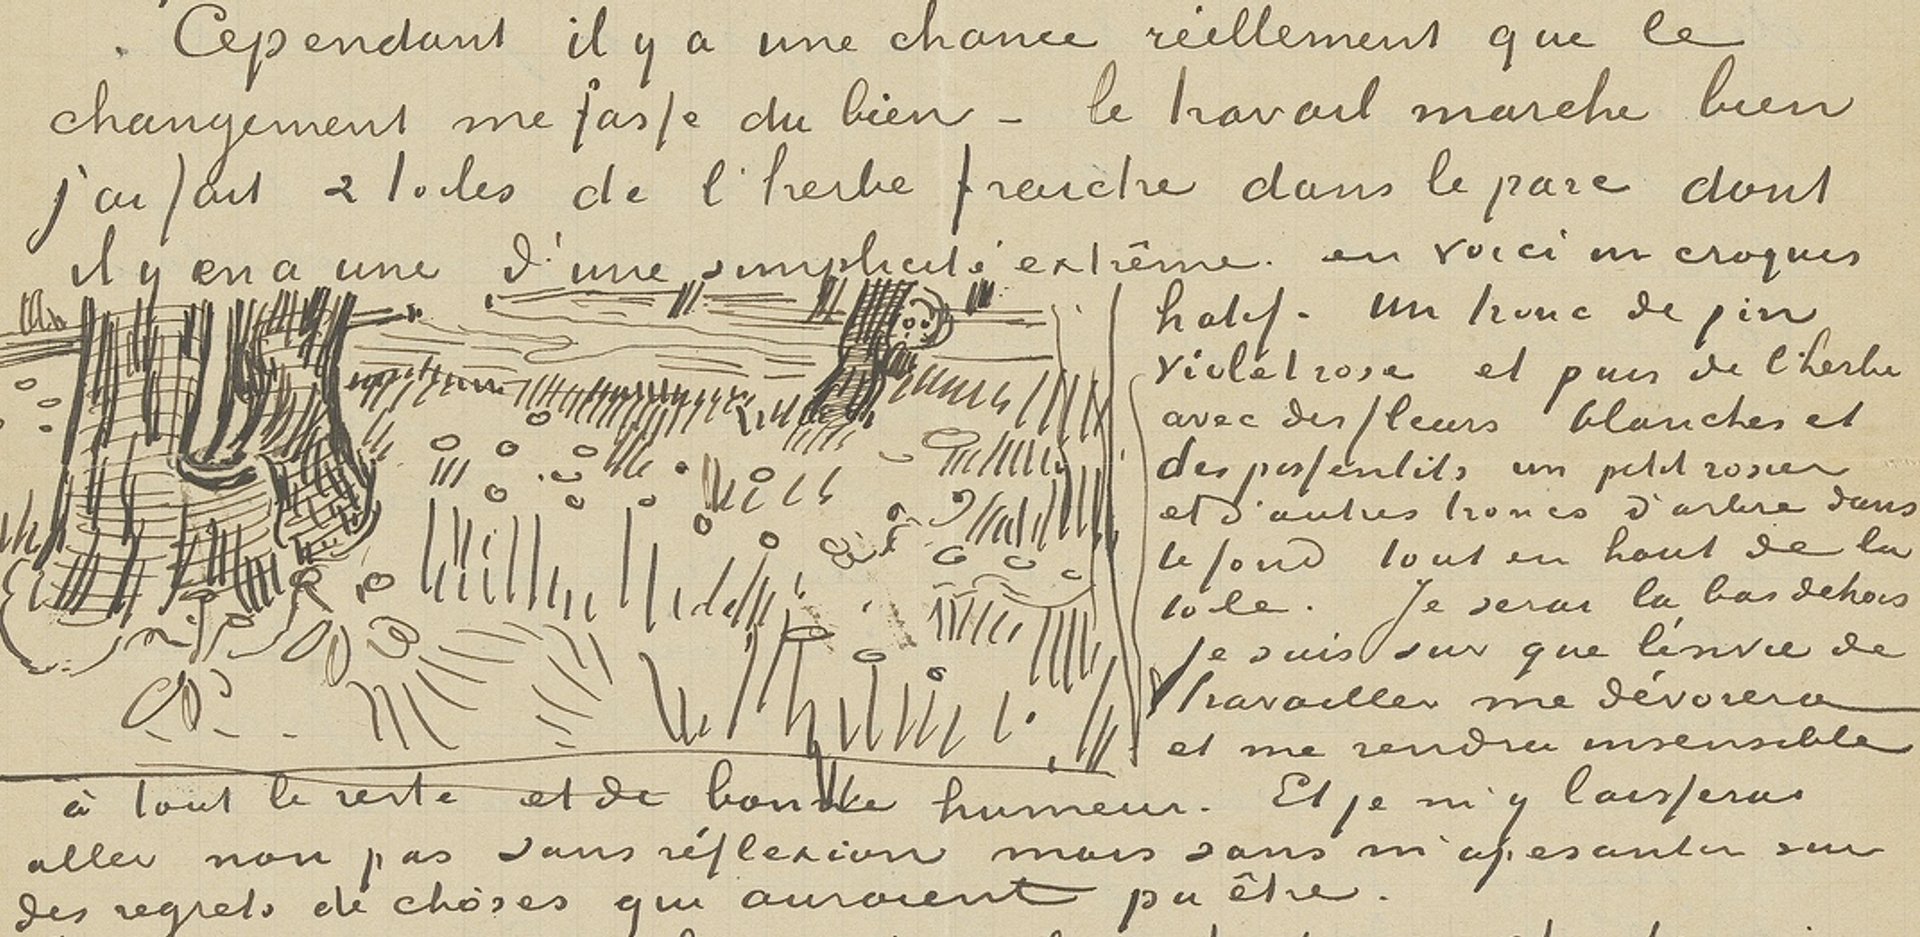 Cependant il y a une chance réellement que le
changement me fasse du bien – le travail marche bien
j'ai fait 2 toiles de l'herbe fraiche dans le parc dont
il y en a une d'une simplicité extrême. en voici un croquis
hatif – Un tronc de pin
violet rose et puis de l'herbe
avec des fleurs blanches et
des pissenlits un petit rosier
et d'autres troncs d'arbre dans
le fond tout en haut de la
toile. Je serai là bas dehors
je suis sur que l'envie de
travailler me dévorera
et me rendra insensible
à tout le reste et de bonne humeur. Et je m'y laisserai
aller non pas sans réflexion mais sans m'apesantir sur
des regrets de chôses qui auraient pu être.